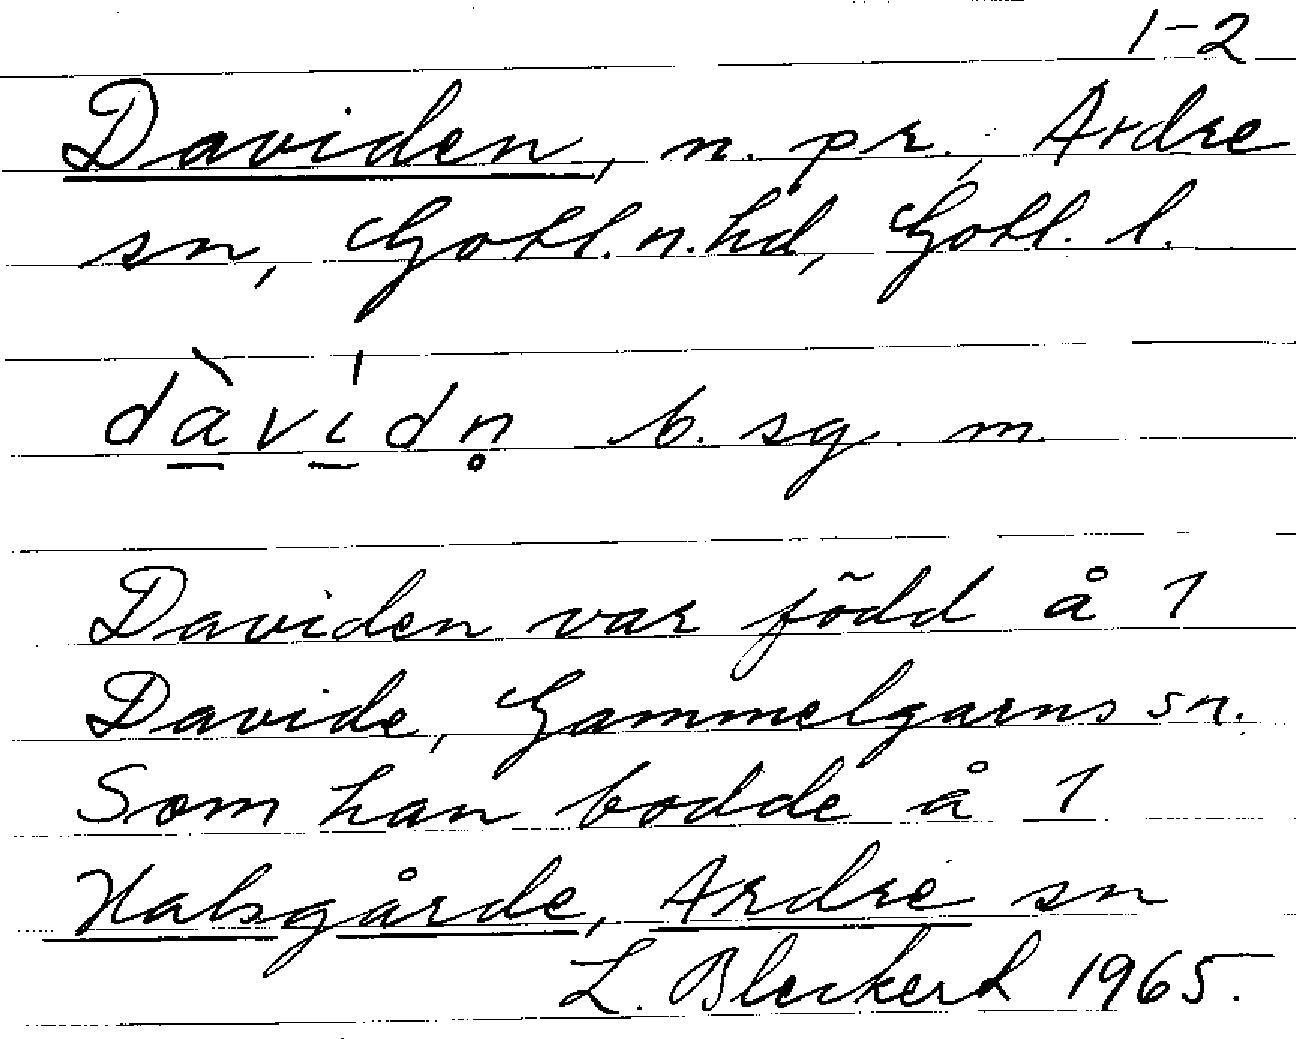 1-2
Daviden, n. pr., Ardre
sn, Gotl. n. hd, Gotl. l.
dàvídn̥ b. sg. m.
Daviden var född å 1
Davide, Gammelgarns sn.
Som han bodde å 1
Halsgårde, Ardre sn
L. Bleckert 1965.